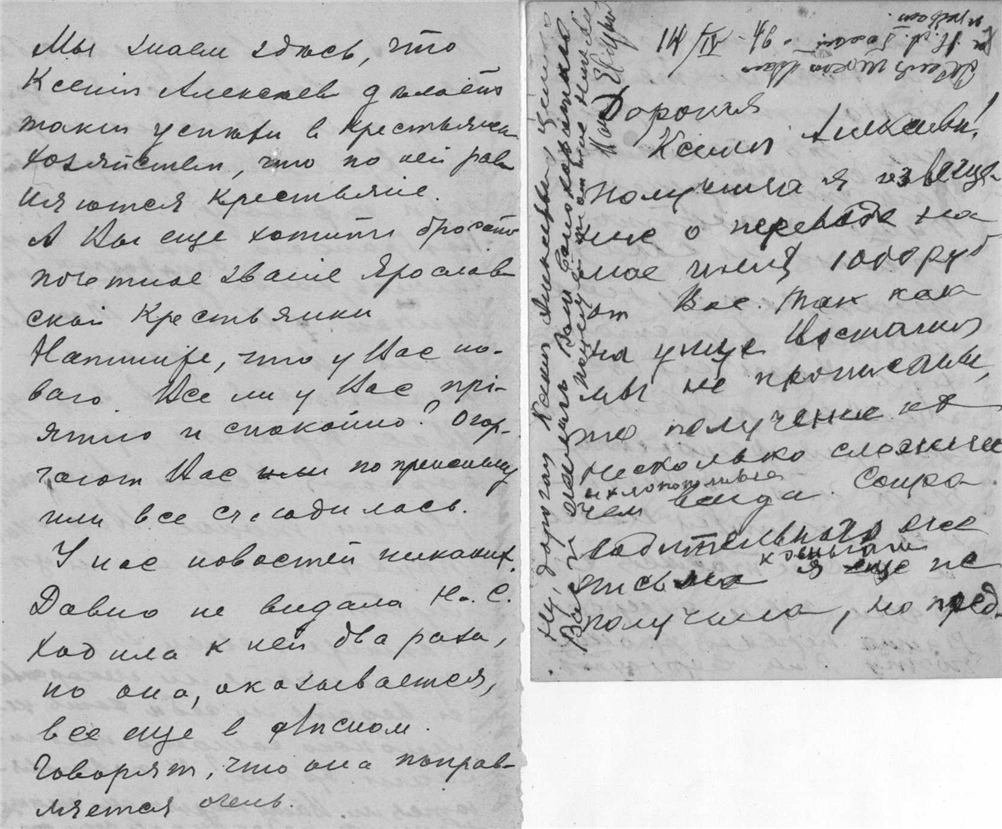 Мы знаем здесь, что
Ксения Алексеев делаете
такие успехи в крестьянск
хозяйстве, что по ней рав
няются Крестьяне.
А Вы еще хотите бросать
почетное звание Ярослав
ской Крестьянки
Напишите, что у Вас но-
ваго. Все ли у Вас прі-
ятно и спокойно? Огор-
чают Вас или по прежнему
или все сгладилось.
У нас новостей никаких.
Давно не видала Н. С.
Ходила к ней два раза,
но она, оказывается,
все еще в
Говорят, что она поправ-
ляется очень.
Дорогая
Ксения Алексеевна!
Получила я извеще-
ние о переводе на
мое имя 1000 руб
от Вас. Так как
на улице
мы не прописаны,
то получение их
несколько сложнее
и хлопотливее
чем всегда. Сопро
водительного же
письма к деньгам я еще не
получила, но пред
Ну, дорогая Ксения Алексеевна,
Вас
14/IV